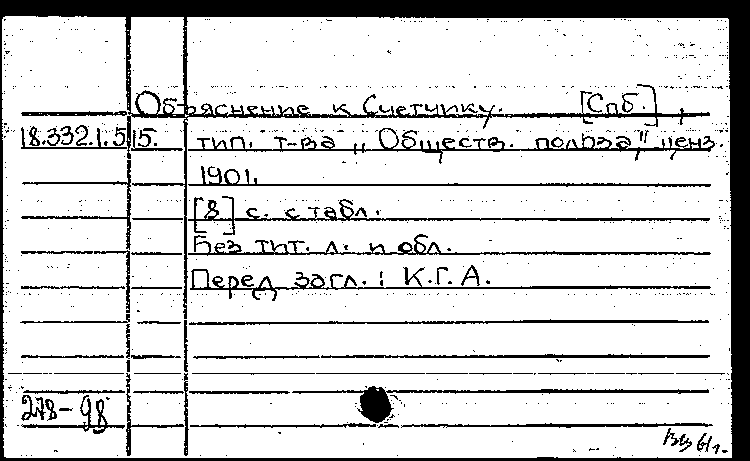 Объяснение к Счетчику. [Спб.],
18.332.1.515. тип. т-ва „Обществ. польза", ценз.
1901.
[8] с. с табл.
Без тит. л. и обл.
Перед загл.: К.Г.А.
278-98